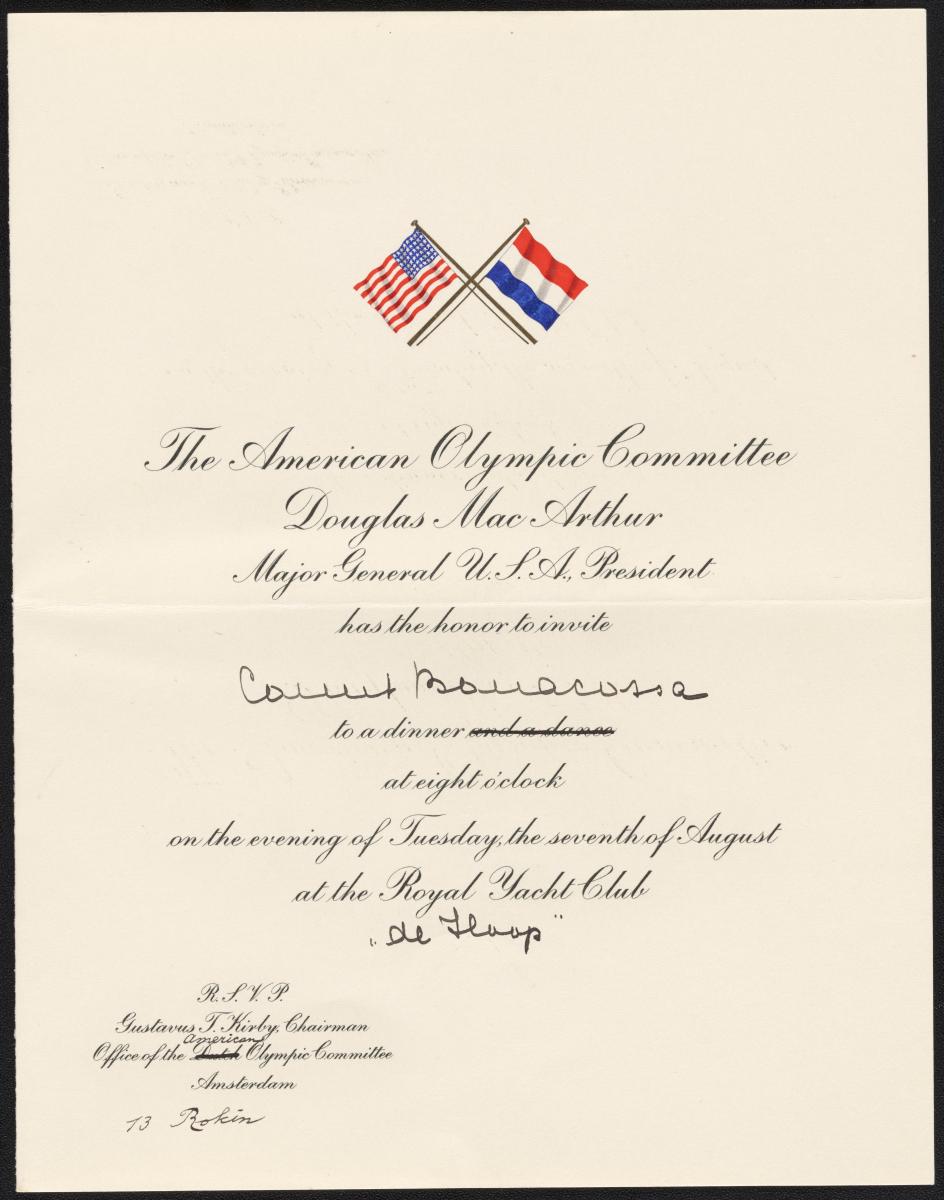 The American Olympic Committee
Douglas Mac Arthur
Major General U.S.A., President
has the honor to invite
Count Bonacossa
to a dinner and a dance
at eight o'clock
on the evening of Tuesday, the seventh of August
at the Royal Yacht Club
„de Hoop"
R.S.V.P.
Gustavus T. Kirby, Chairman
American
Office of the Dutch Olympic Committee
Amsterdam
13 Rokin